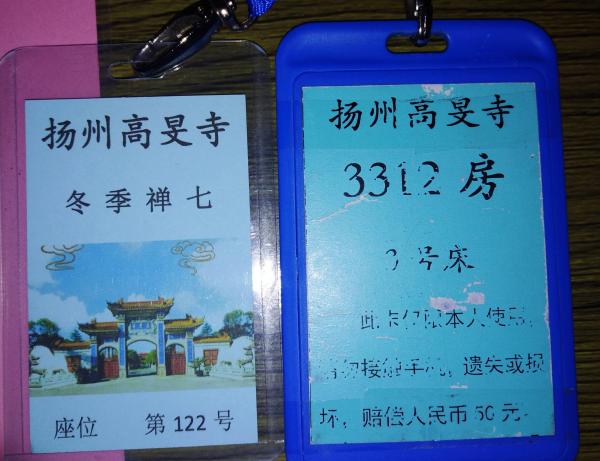 扬州高旻寺
冬季禅七
座位 第122号
扬州高旻寺
3312房
号床
此卡仅限本人使用,
接触手机，遗失或损
坏，赔偿人民币50元。